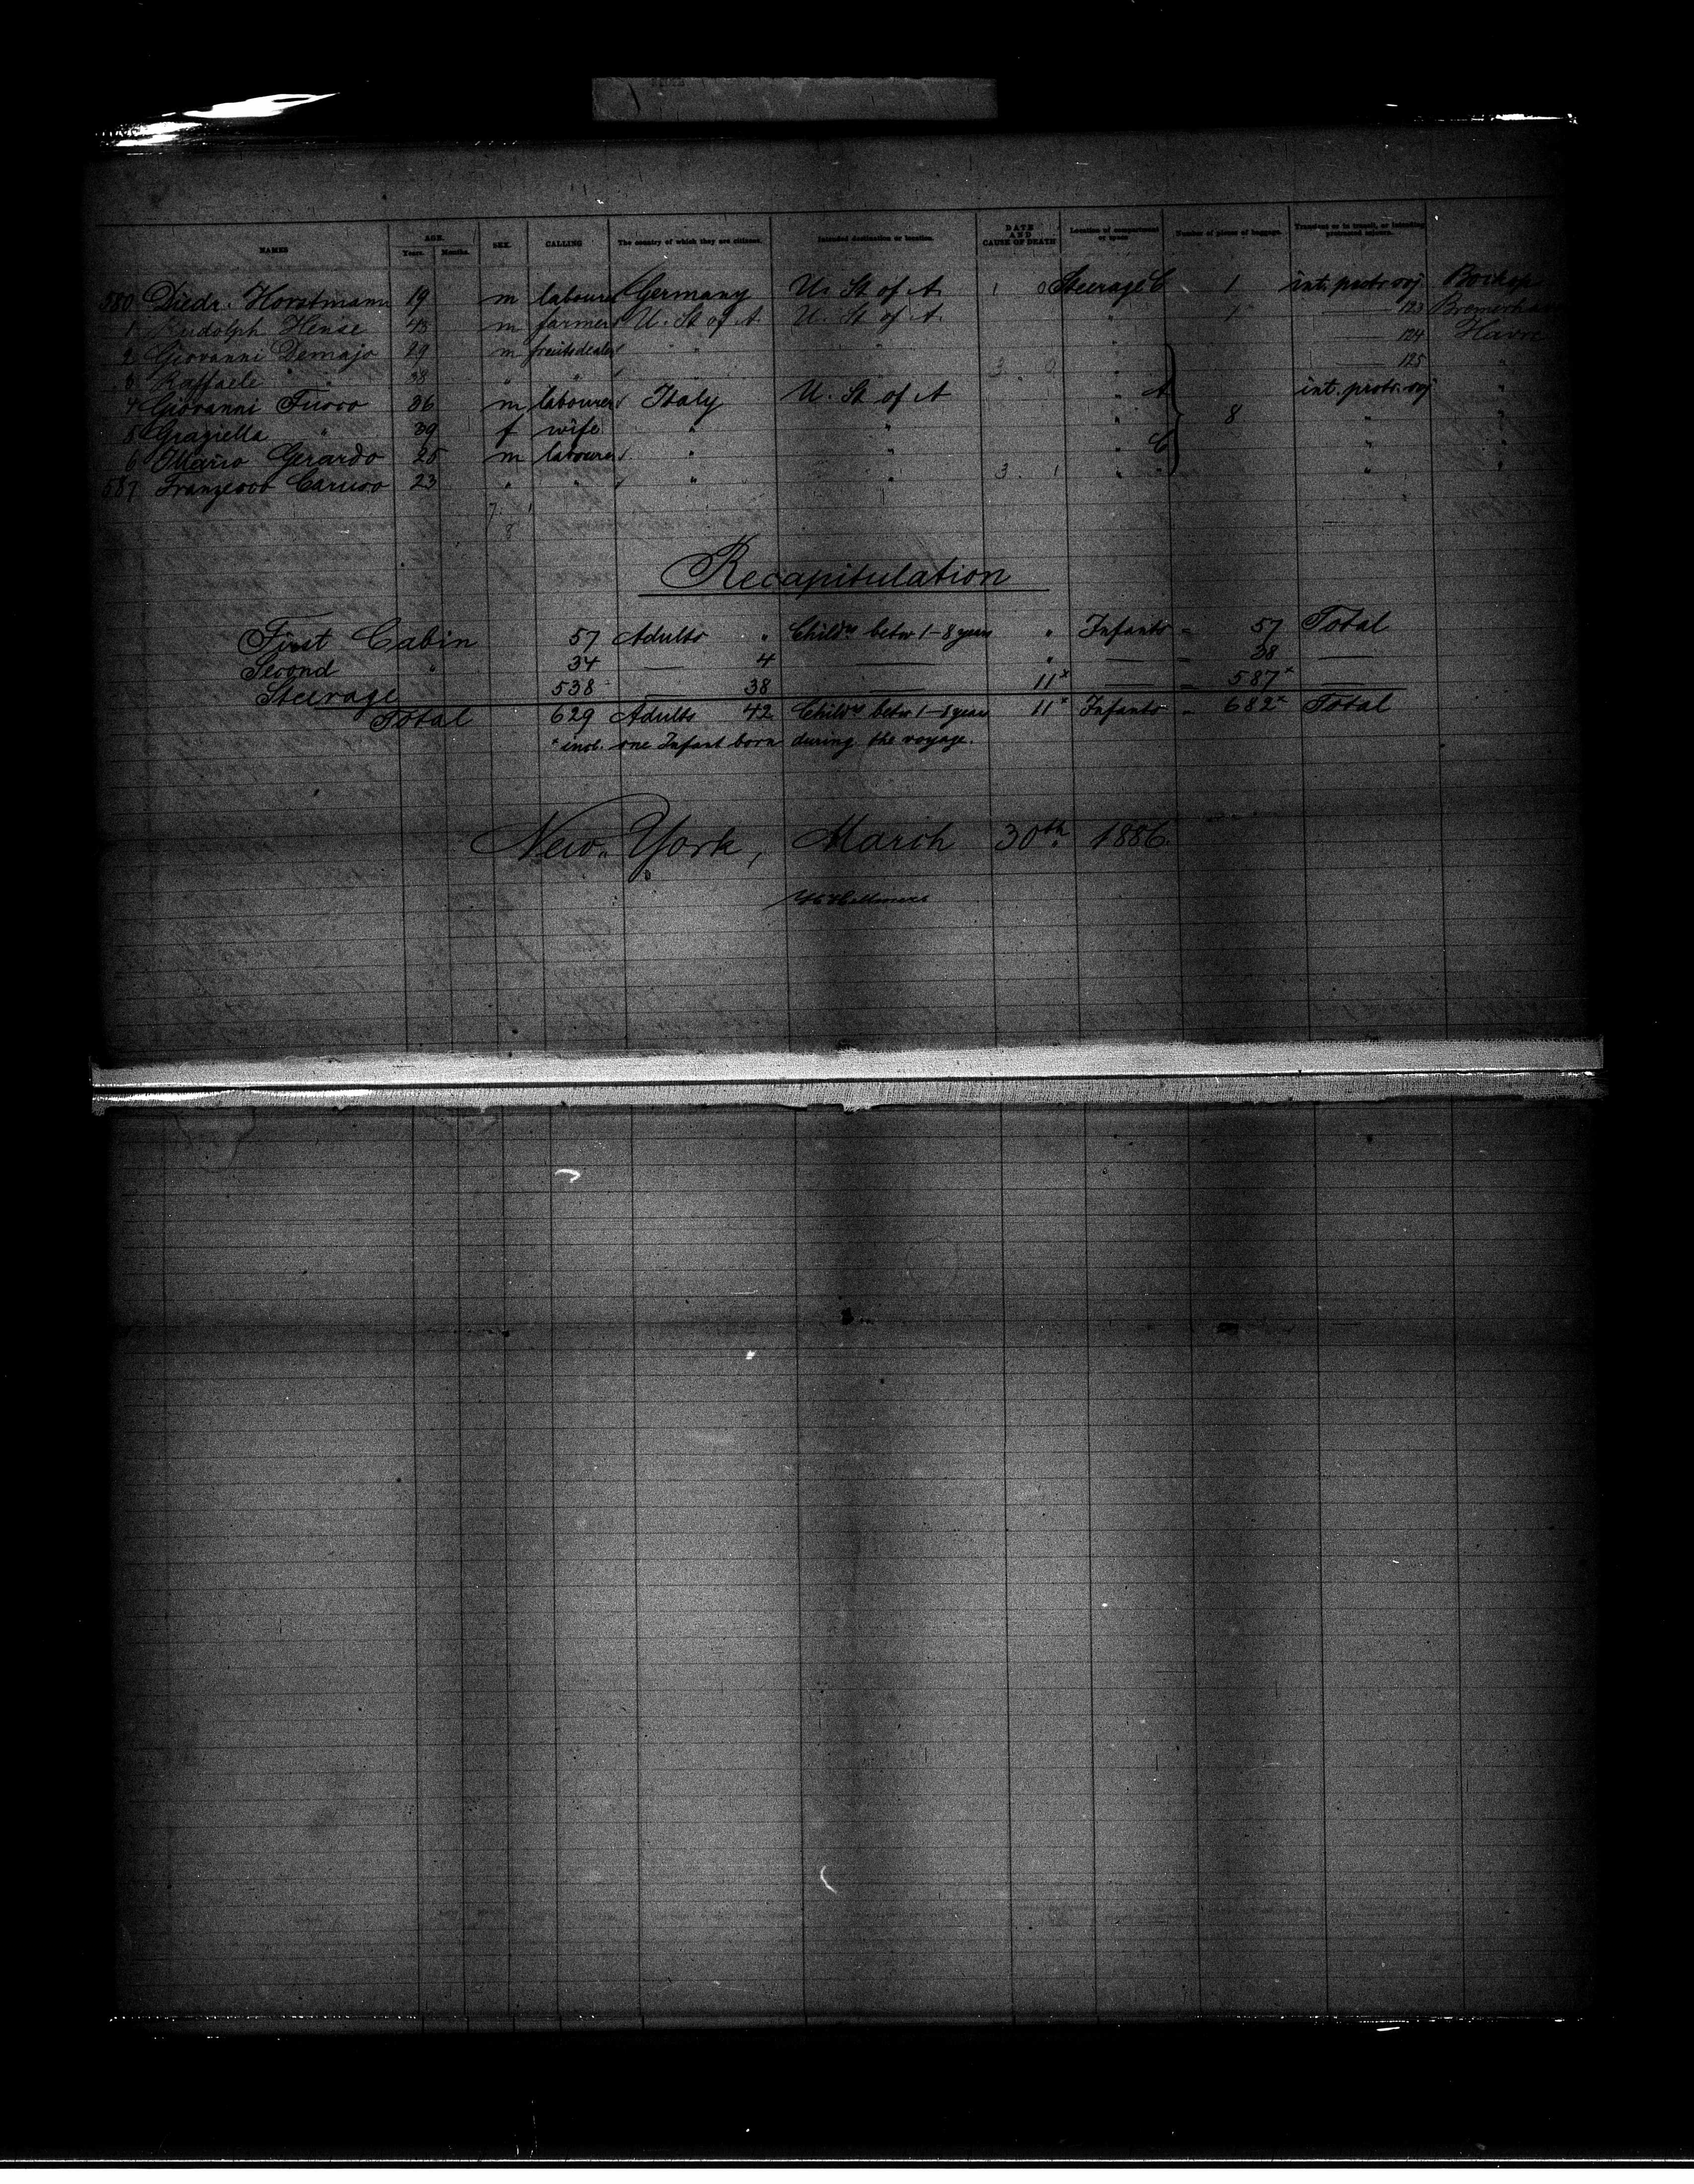 NAMES AGE. Years. Months. SEX. CALLING The country of which they are citizens. Intended destination or location. DATE AND CAUSE OF DEATH Location of compartment or space Number of pieces of baggage. Transient or in transit, or intending protracted sojourn.
580 Diedr. Horstmann 19 m labourer Germany U. St of A. 1 0 Steerage C 1 int. protr. soj.
1 Rudolph Hense 43 m farmer U. St of A. U. St of A. " 1 — 123 Bremerhaven
2 Giovanni Demajo 29 m fruitsdealer " " " — 124 Havre
3 Raffaele " 38 " " " " 3 0 " — 125 "
4 Giovanni Fuoco 36 m labourer Italy U. St of A " A int. protr. soj "
5 Graziella " 39 f wife " " " 8 " "
6 Mario Gerardo 25 m labourer " " " C " "
587 Franzesco Caruso 23 " " " " 3 1 " " " "
7 1
8
Recapitulation
First Cabin 57 Adults " Childrn betw 1-8 years " Infants = 57 Total
Second " 34 — 4 — " — = 38 —
Steerage 538 — 38 — 11x — = 587x —
Total 629 Adults 42 Childrn betw 1-8 years 11x Infants = 682x Total
x incl. one Infant born during the voyage.
New-York, March 30th. 1886.